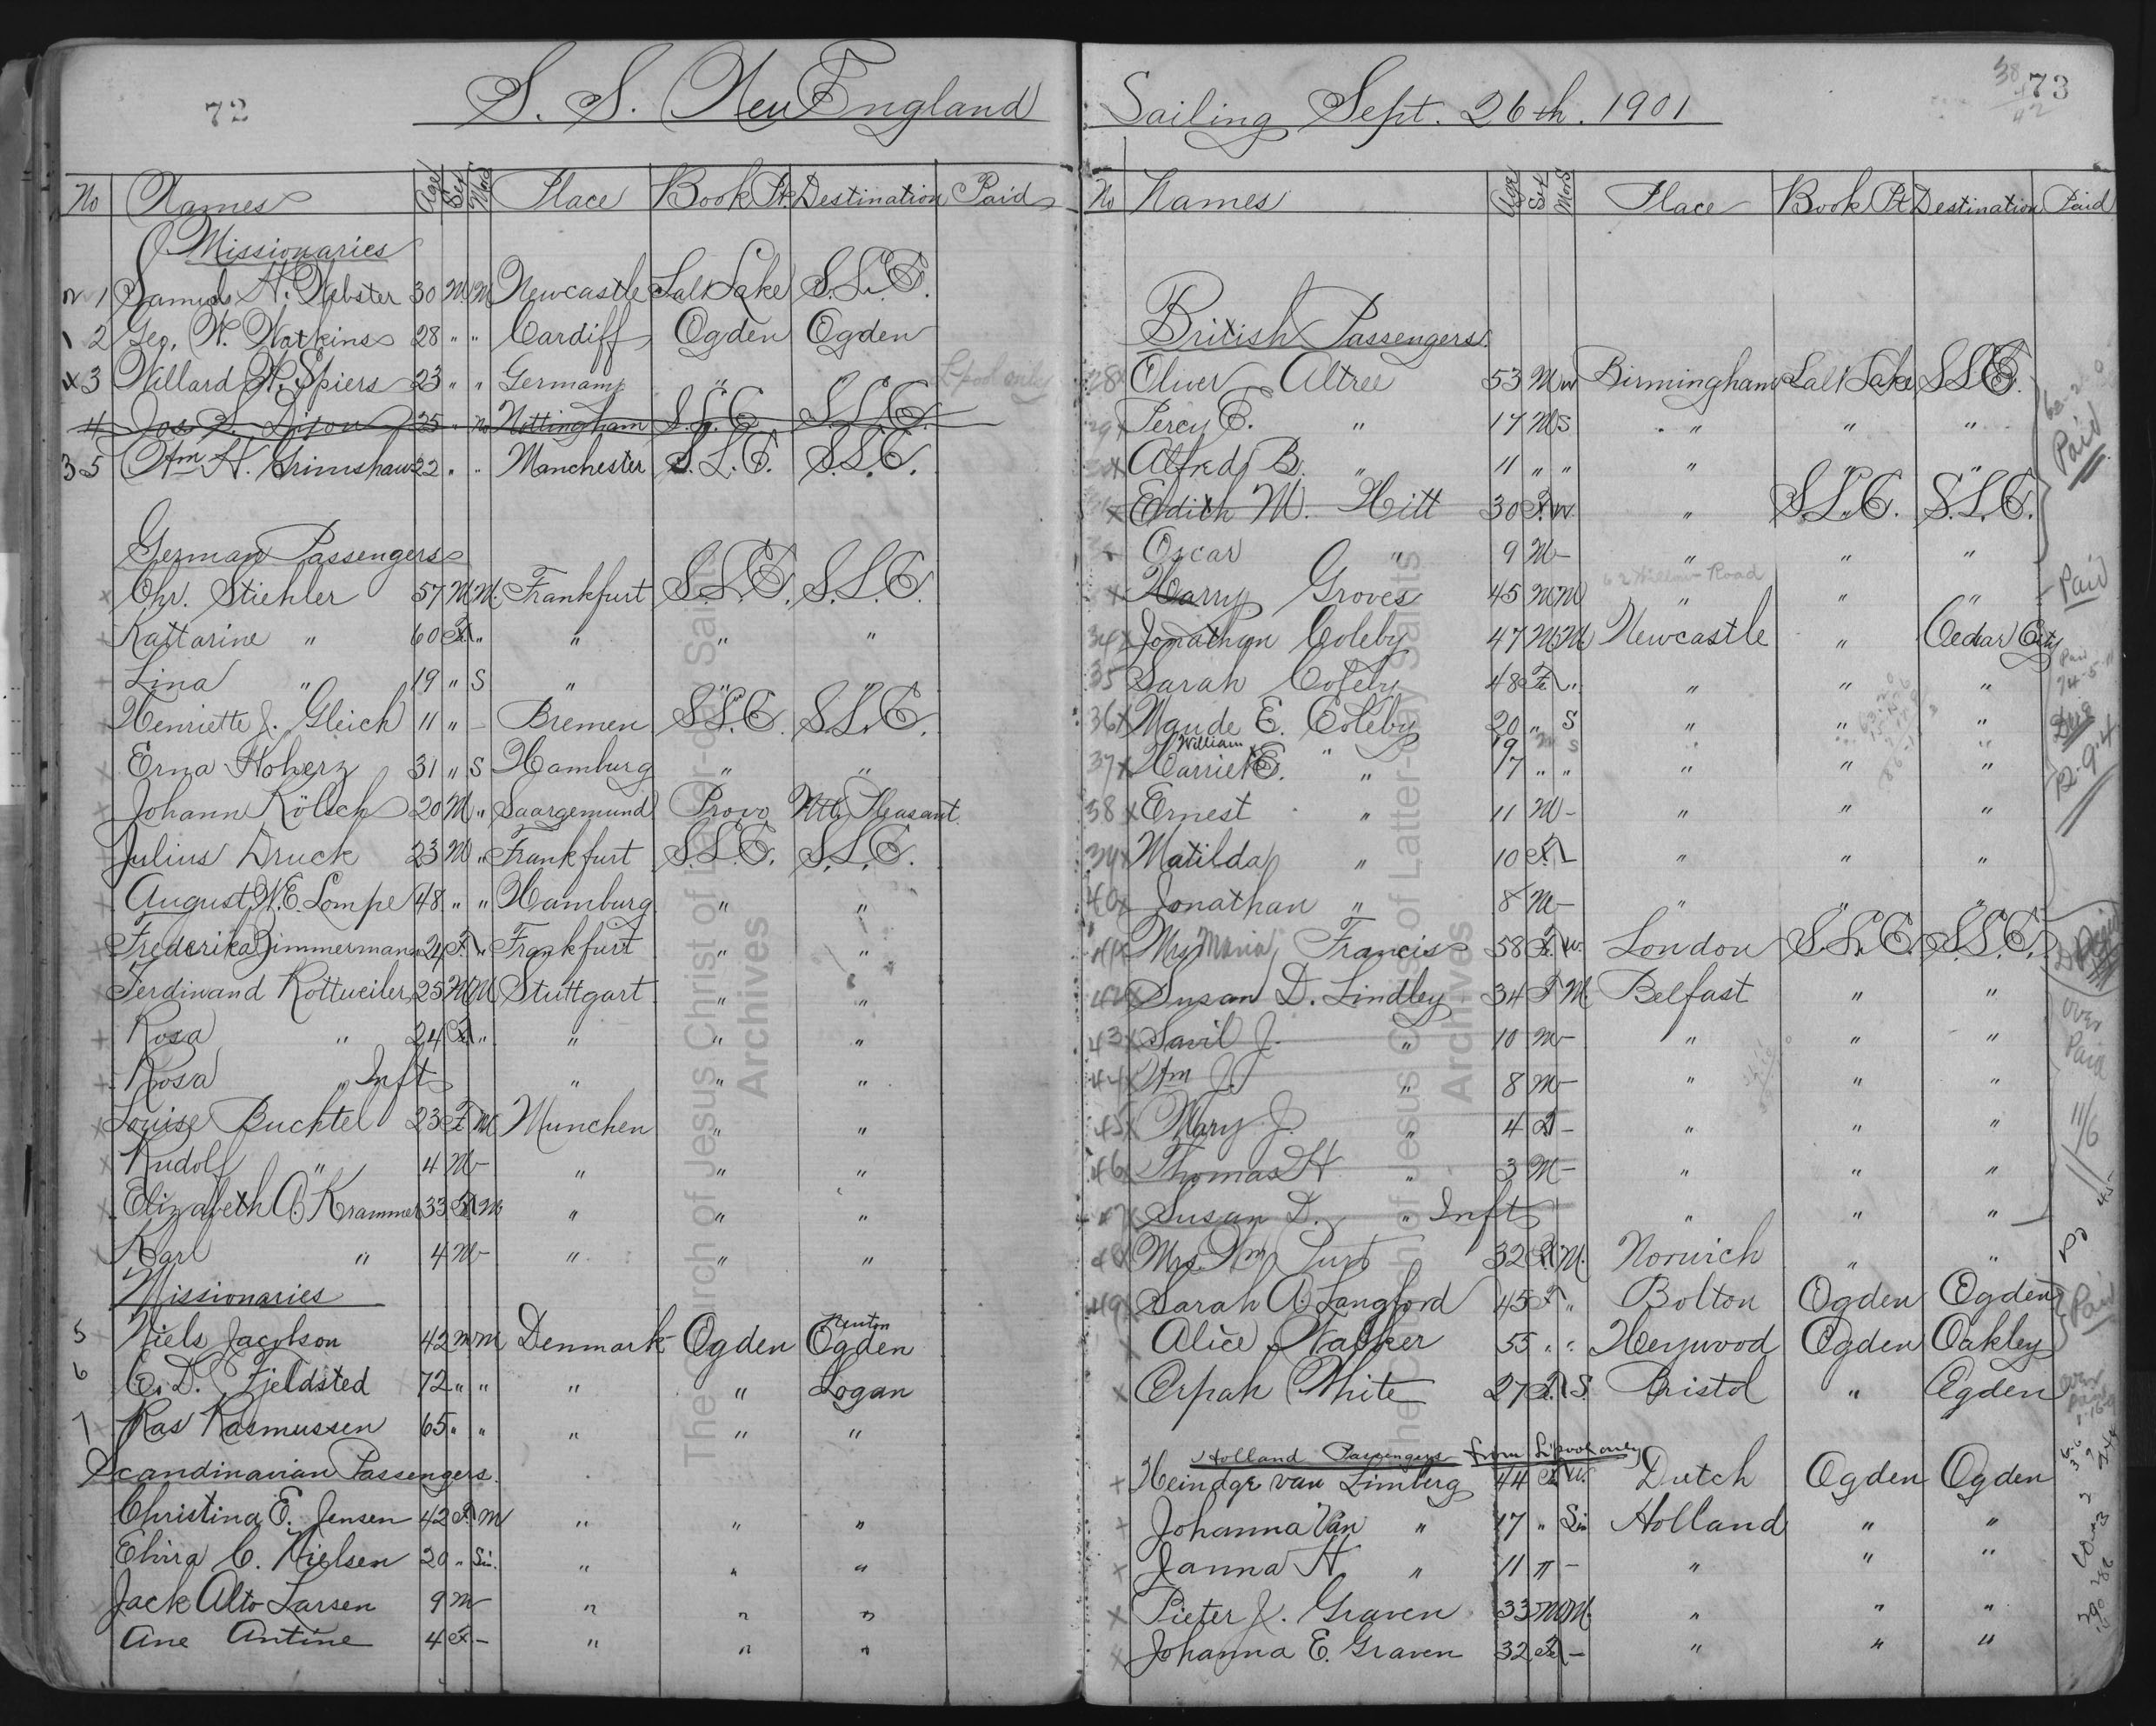 72
S. S. New England
No Names Age Sex Mar Place Book Pt. Destination Paid
Missionaries
1 Samuel H. Webster 30 M M Newcastle Salt Lake S.L.C.
1 2 Geo. W. Watkins 28 " " Cardiff Ogden Ogden
3 Willard H. Spiers 23 " " Germany " " L'pool only
4 Jos S. Dixon 25 " Nottingham S.L.C. S.L.C.
3 5 Wm H. Grimshaw 22 " " Manchester S.L.C. S.L.C.
German Passengers
x Chr. Stiehler 57 M M. Frankfurt S.L.C. S.L.C.
x Kattarine " 60 F. " " " "
Lina " 19 " S " " "
Henriette J. Gleich 11 " - Bremen S.L.C. S.L.C.
x Erna Hoherz 31 " S Hamburg " "
x Johann Kölsch 20 M " Saargemund Provo Mt. Pleasant
Julius Druck 23 M " Frankfurt S.L.C. S.L.C.
August W. E. Lompe 48 " " Hamburg " "
x Frederika Zimmermann 24 F. " Frankfurt " "
x Ferdinand Rottweiler 25 M M Stuttgart " "
x Rosa " 24 F. " " " "
Rosa " Inft " " "
x Louise Buchtel 23 F M Munchen " "
x Rudolf " 4 M - " " "
Elizabeth A. Krammer 33 F. M " " "
x Karl " 4 M - " " "
Missionaries
5 Niels Jacobson 42 m m Denmark Ogden Newton Ogden
6 C. D. Fjeldsted 72 " " " " Logan
7 Ras Rasmussen 65 " " " " "
Scandinavian Passengers.
Christina E. Jensen 42 F. M " " "
Elvira C. Nielsen 20 " Sin. " " "
Jack Alto Larsen 9 M - " " "
Ane Antine 4 F. - " " "
Sailing Sept. 26th. 1901
73
No Names Age Sex Mars Place Book Pt Destination Paid
British Passengers.
28 Oliver Altree 53 M W Birmingham Salt Lake S.L.C.
Percy E. " 17 M S " " "
Alfred B. " 11 " " " " "
Paid
x Edith M. Hitt 30 F. W. " S.L.C. S.L.C.
Oscar " 9 M - " " "
62 Willow Road
x Harry Groves 45 M M " " " Paid
34 x Jonathan Coleby 47 M M Newcastle " Cedar City
35 Sarah Coleby 48 Fe. " " " "
36 x Maude E. Coleby 20 " S " " "
William 19 M S " "
37 x Harriet E. " 17 " " " " "
38 x Ernest " 11 M - " " "
39 x Matilda " 10 F. - " " "
40 x Jonathan " 8 M - " " "
41 x Mrs Maria Francis 58 F. W. London S.L.C. S.L.C.
42 x Susan D. Lindley 34 F M. Belfast " "
43 x Savil J. " 10 M - " " "
44 x Wm J. " 8 M - " " "
45 x Mary J. " 4 F - " " "
46 x Thomas H " 3 M - " " "
47 x Susan D. " Inft " " "
over
Paid
11/6
48 x Mrs. Wm 32 F. M. Norwich " "
49 x Sarah A. Langford 45 F. " Bolton Ogden Ogden
x Alice Walker 55 " " Heywood Ogden Oakley
Paid
x Orpah White 27 F. S. Bristol " Ogden
Holland Passengers from L'pool only
+ Heindge van Limberg 44 F. W. Dutch Ogden Ogden
+ Johanna Van " 17 " Sin Holland " "
+ Janna H " 11 " - " " "
x Pieter J. Graven 33 M M. " " "
x Johanna E. Graven 32 F. - " " "
The Church of Jesus Christ of Latter-day Saints
Archives
The Church of Jesus Christ of Latter-day Saints
Archives